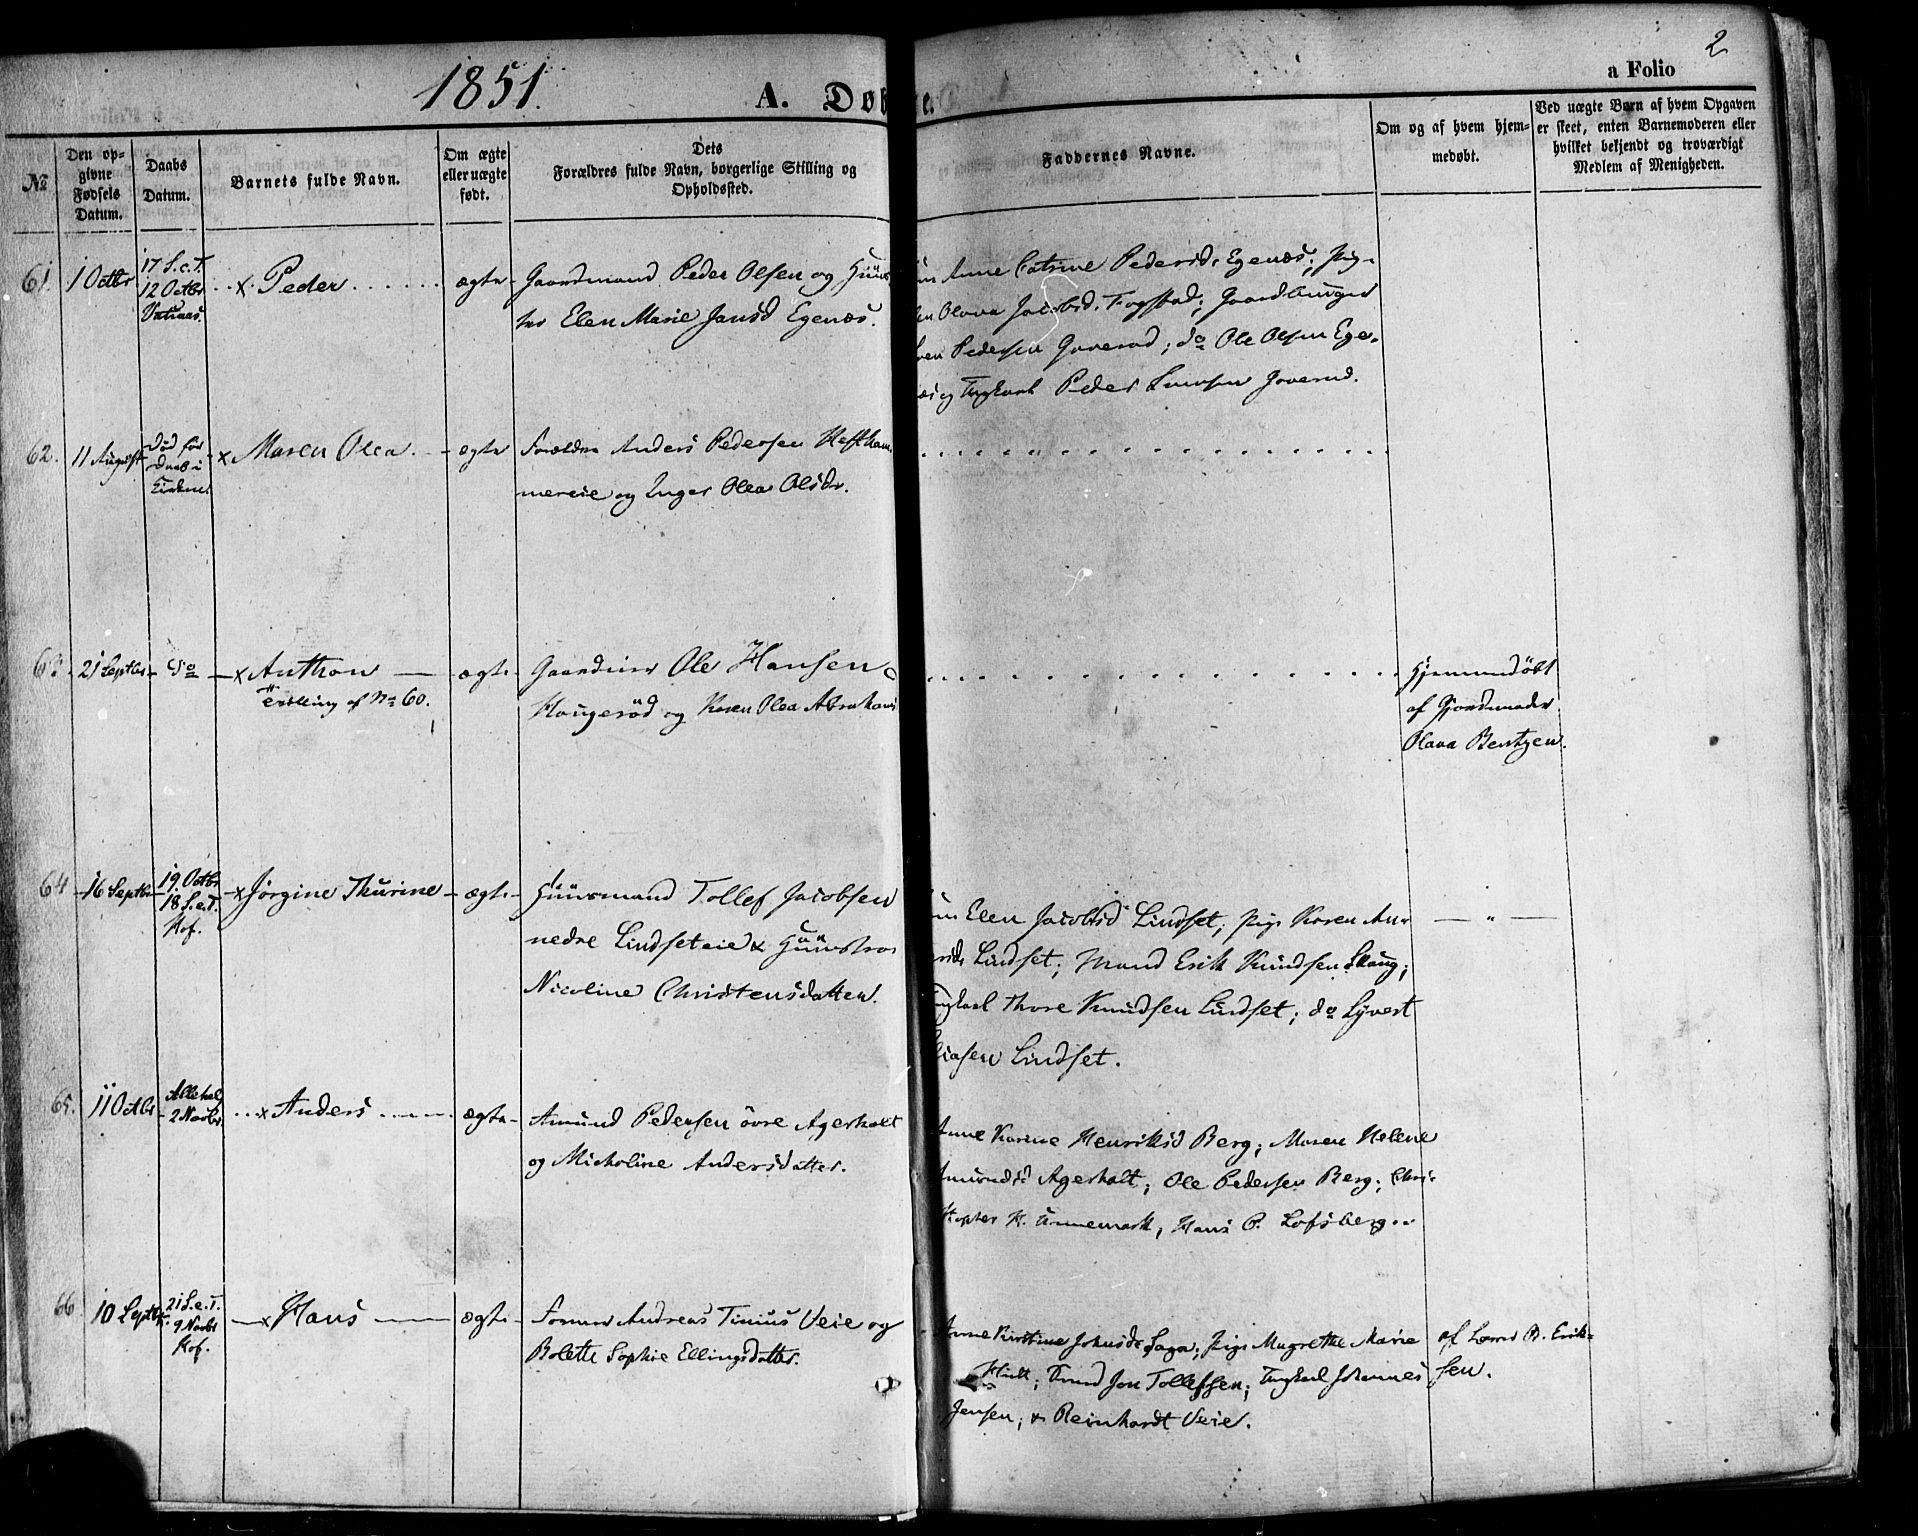 1851.
A. Døb
e.
a Folio
2
No
Den op-
givne
Fødsels
Datum.
Daabs
Datum.
Barnets fulde Navn.
Om ægte
eller uægte
født.
Dets
Forældres fulde Navn, borgerlige Stilling og
Opholdssted.
Faddernes Navne.
Om og af hvem hjem-
medøbt.
Ved uægte Børn af hvem Opgaven
er skeet, enten Barnemoderen eller
hvilket bekjendt og troværdigt
Medlem af Menigheden.
61. 1 Octbr
17 S.e.T.
12 Octbr
x Peder
ægte
Gaardmand Peder Olsen og
Elen Marie Jansd Egenæs.
Anne Catrine Pedersd. Egenæs; Pig-
Olava Jacobsd. Fogstad;
Pedersen Goverod; do Ole Olsen Ege-
og Ungkarl Peder Goverud.
62. 11 August
Død før
Daab i
x Maren Olea
ægte
Forældre Anders Pedersen
mereie og Inger Olea Olsdr.
63. 21 Septbr
do
x Anthon
Tvilling af No 60.
ægte
Ole Hansen
Haugerød og Karen Olea Abrahams
Hjemmedøbt
af Gjordmoder
Olava Bentzen.
64 16 Septbr
19. Octbr
18 S.e.T.
Hof.
x Jørgine Thurine
ægte
Huusmand Tollef Jacobsen
nedre Lindseteie & Huustro
Nicoline Christensdatter.
Elen Jacobsd Lindset; Pige Karen An-
Lindset; Mand Erik Knudsen Skaug;
Thore Knudsen Lindset; do Syvert
Lindset.
— " —
65. 11 Octbr
Allehel
2 Novbr
x Anders
ægte
Amund Pedersen övre Agerholt
og Micholine Andersdatter.
Anne Karine Henriksd Berg; Maren Helene
Amundsd Agerholt; Ole Pedersen Berg; Chri-
stopher H. Unnemark; Hans P. Lofsberg.
66 10 Septbr.
21 S.e.T.
9 Novbr
Hof.
x Hans
ægte
Andreas Tinius Veie og
Bolette Sophie Ellingsdatter.
Anne Kirstine Johnsd Saga; Pige Magrethe Marie
Jon Tollefsen; Ungkarl Johannes
Jensen; & Reinhardt Veie.
af B. Erik-
sen.